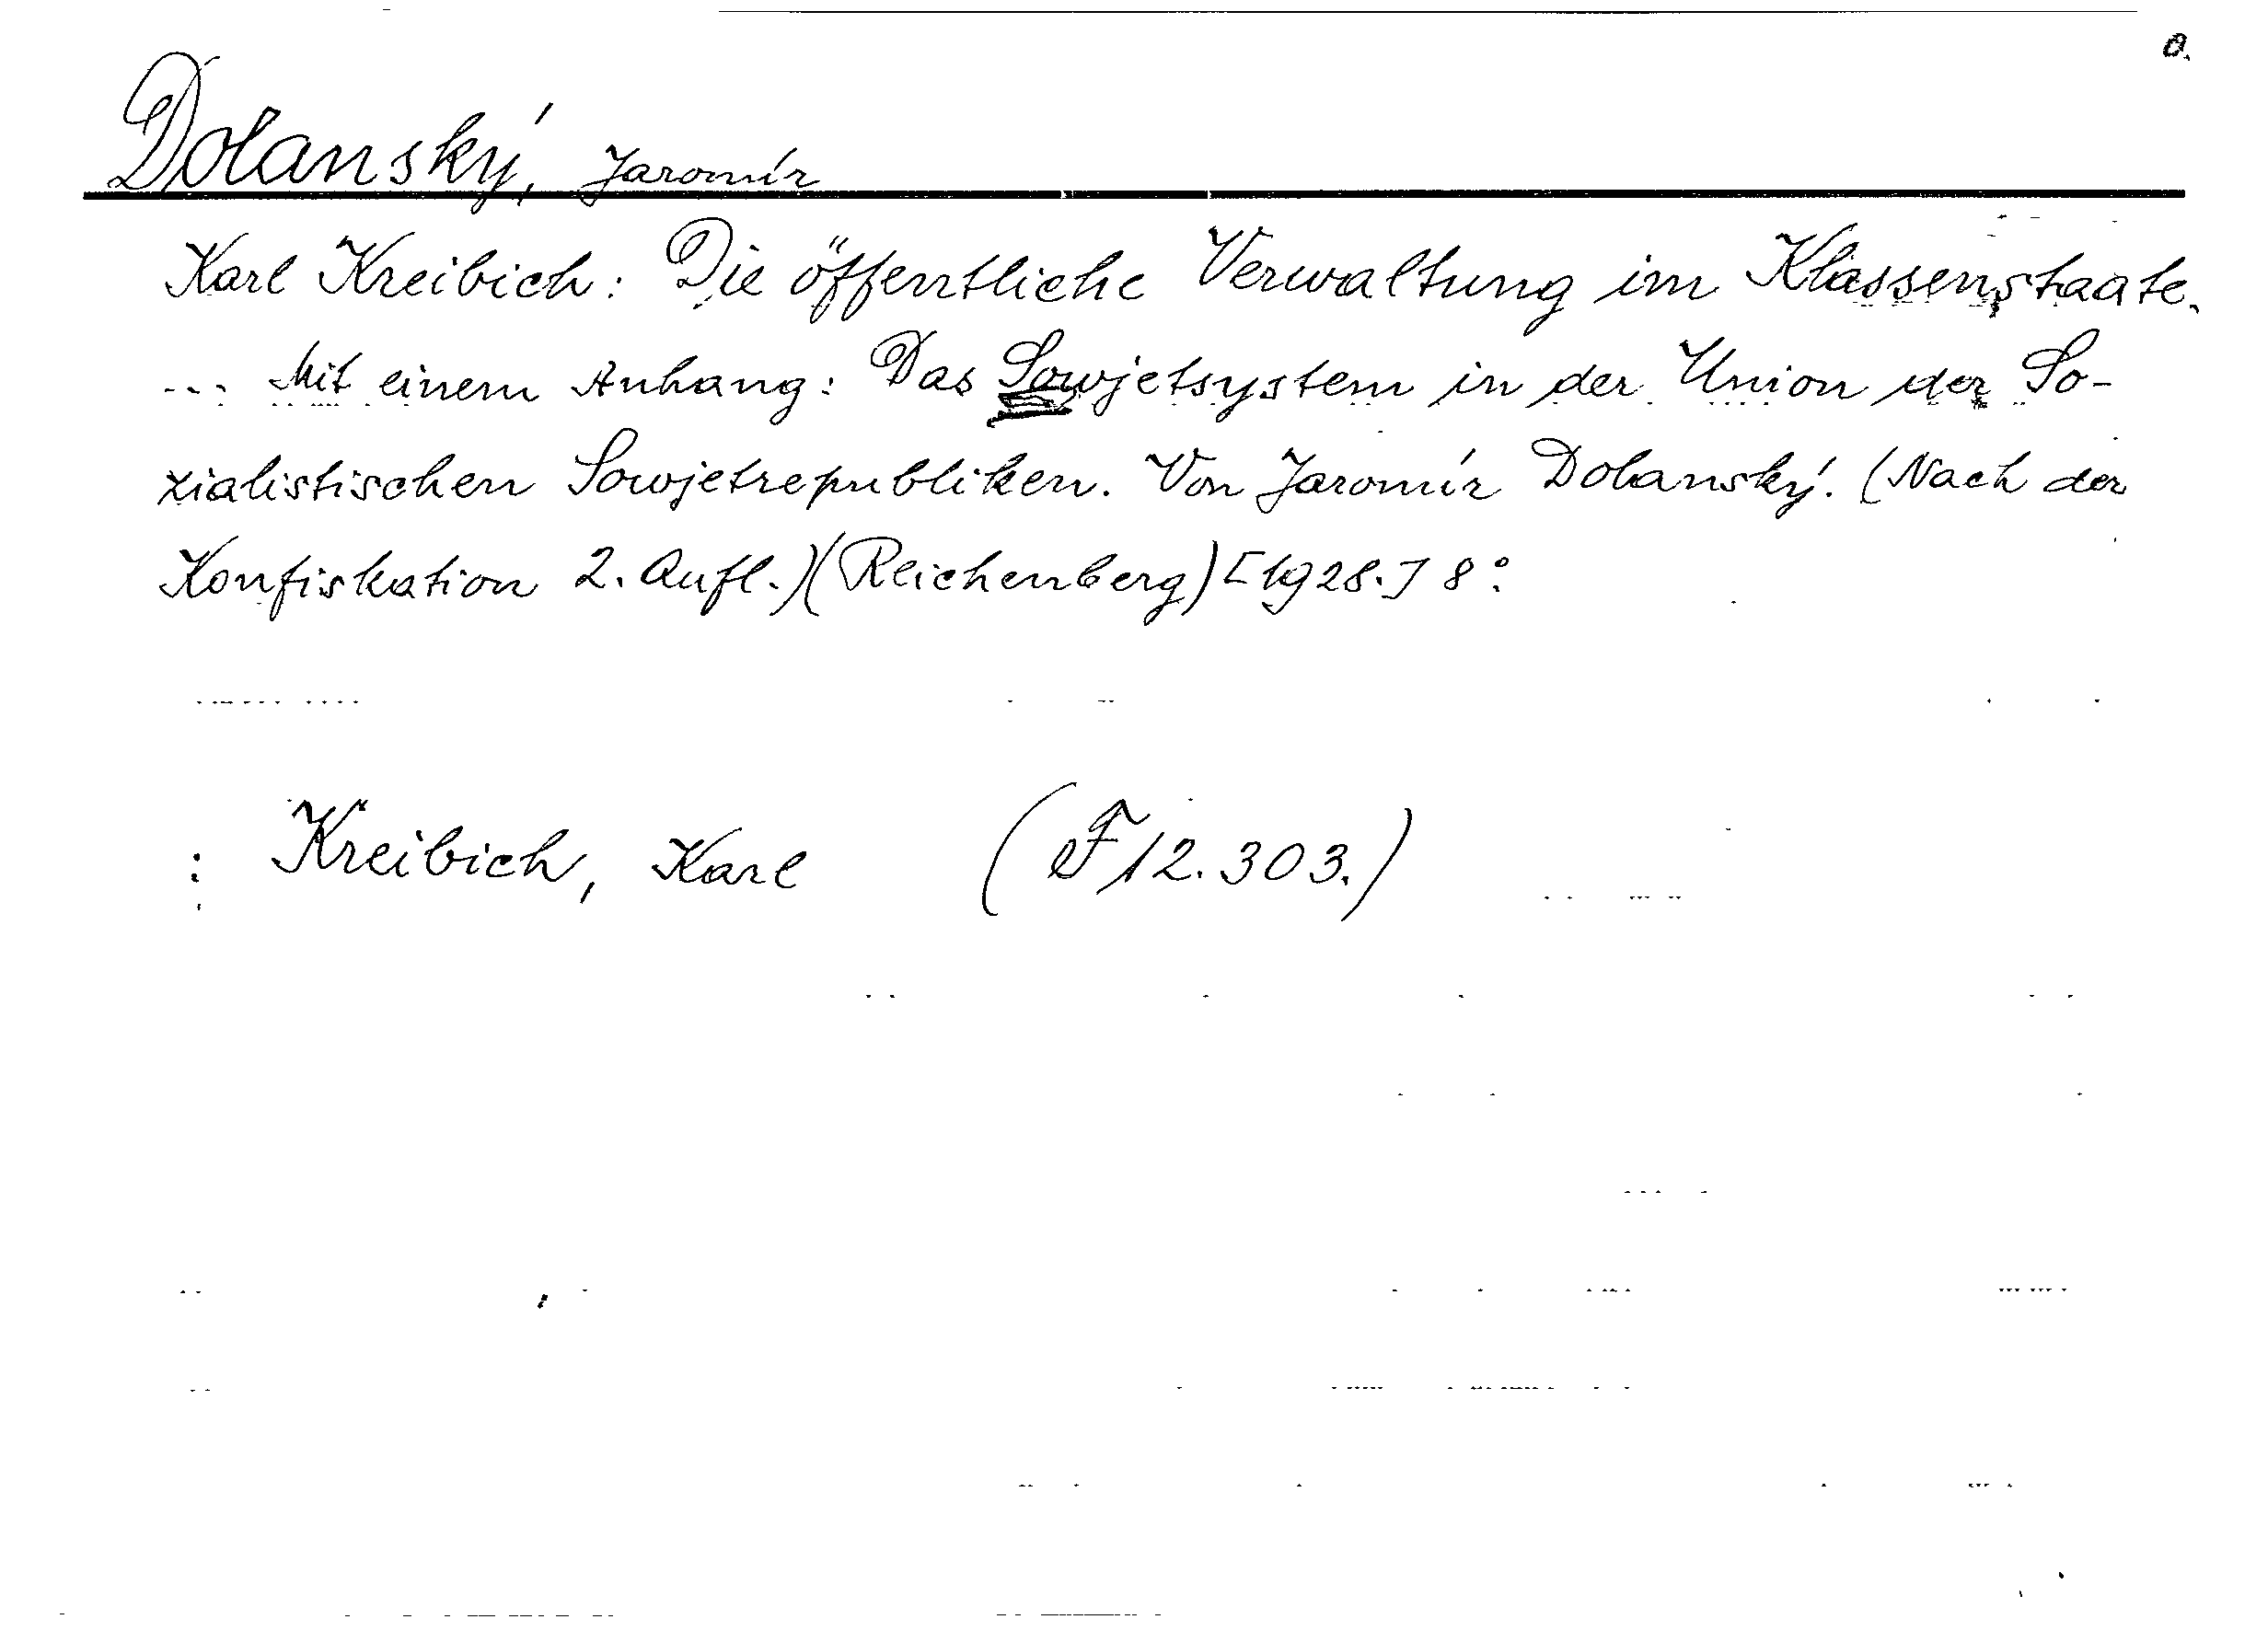 a.
Dolanský, Jaromír
Karl Kreibich: Die öffentliche Verwaltung im Klassenstaate.
... Mit einem Anhang: Das Sowjetsystem in der Union der So-
zialistischen Sowjetrepubliken. Von Jaromír Dolanský. (Nach der
Konfiskation 2. Aufl.)(Reichenberg) [1928.] 8°.
: Kreibich, Karl (F 12.303.)